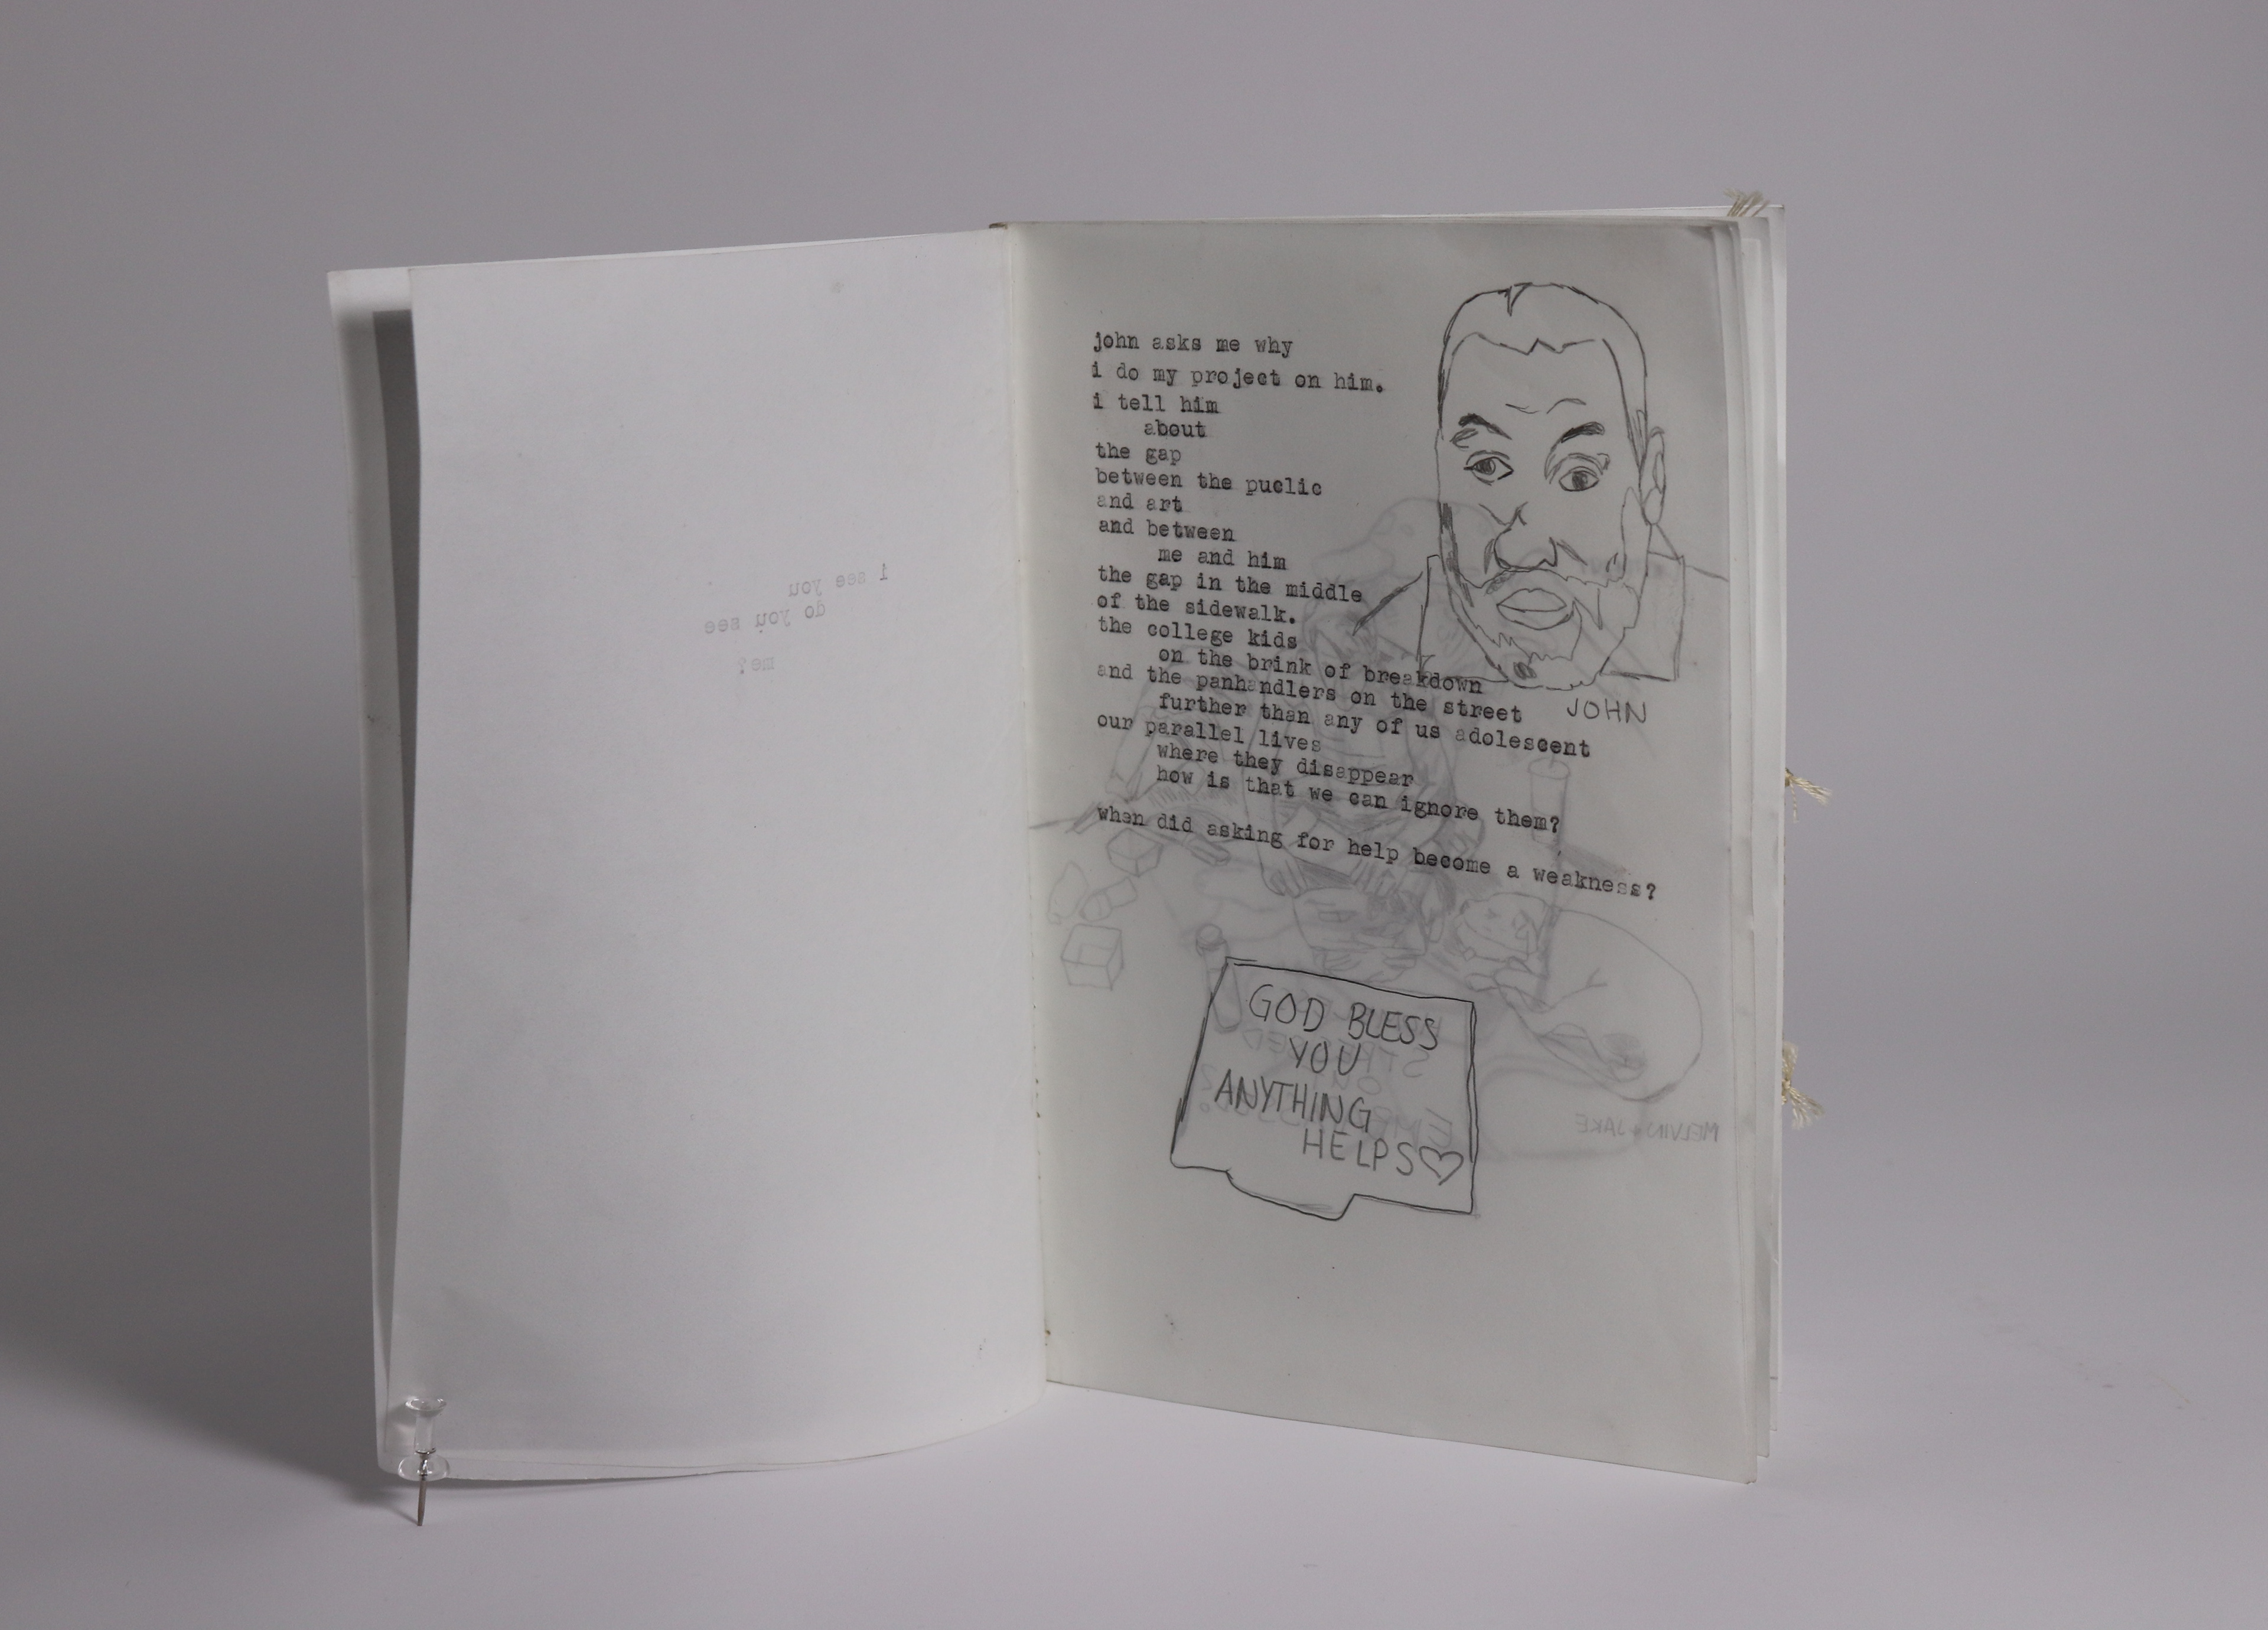 i see you
do you see
me?
john asks me why
i do my project on him.
i tell him
about
the gap
between the puclic
and art
and between
me and him
the gap in the middle
of the sidewalk.
the college kids
on the brink of breakdown
and the panhandlers on the street
further than any of us adolescent
our parallel lives
where they disappear
how is that we can ignore them?
when did asking for help become a weakness?
JOHN
GOD BLESS
YOU
ANYTHING
HELPS♡
MELVIN + JAKE